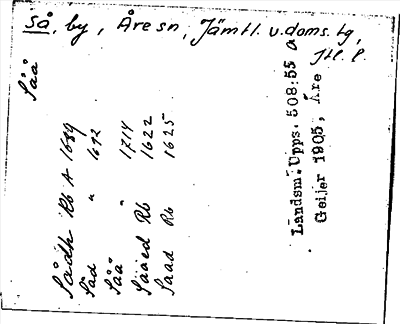 Så, by, Åre sn, Jämtl. v. doms. tg,
Jtl. l.
Såå
Sådh Rb A 1689
Såd " 1692
Såå 1714
Sååed Rb 1622
Saad Rb 1625
Landsm. Upps. 508:55 a
Geijer 1905; Åre